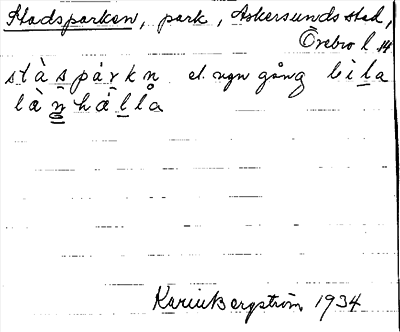 Stadsparken, park, Askersunds stad,
Örebro l. 
stàspárkn el. ngn gång lìla
lànhålla
Karin Bergström 1934